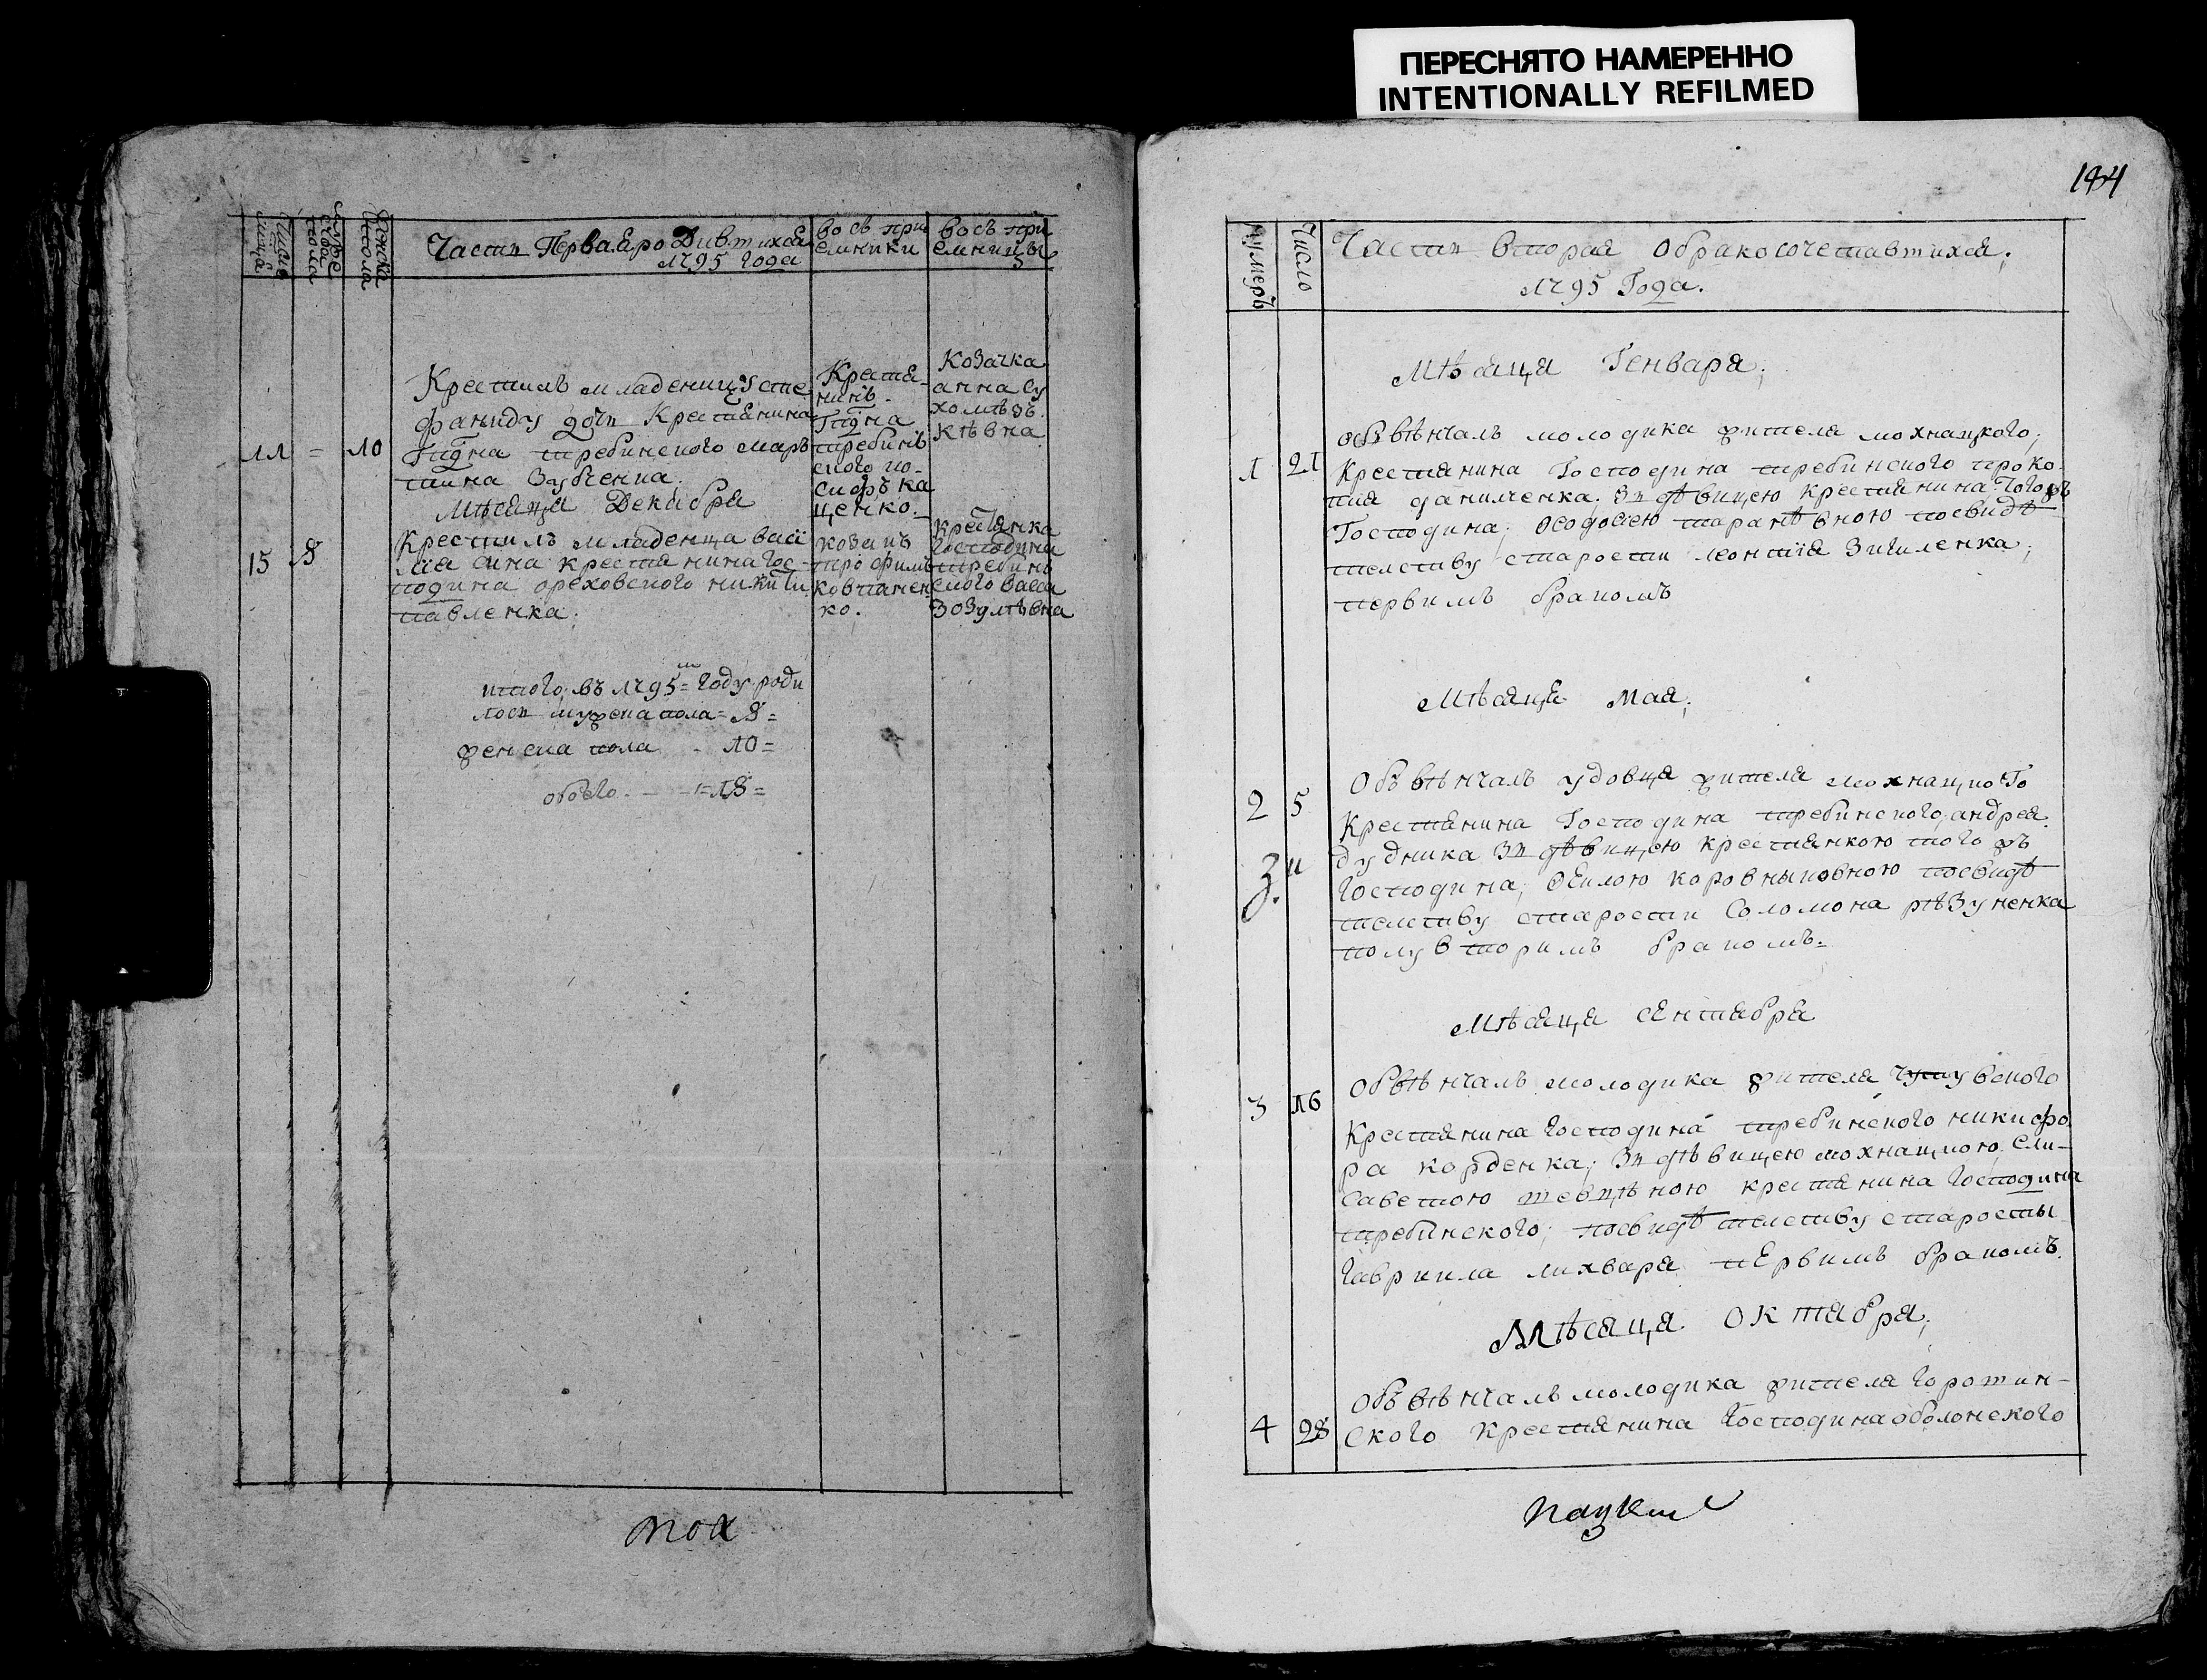 ПЕРЕСНЯТО НАМЕРЕННО
INTENTIONALLY REFILMED
Части Перва. Еро Дившихся
1795 года
восъ при
емники
восъ при
емницы
Крестилъ младеницу сте
фаниду дочъ Крестянина
11 = 10 Гпдна требинского мар
тина Зубченка.
Крестя-
нинъ
Гпдна
требинъ
ского но-
сиоръ ка
ценко.
Козачка
анна су
хомѣзъ
кѣвна
Мѣсяца Декабря
15 8 Крестилъ младенца васи
лия сина крестянина гос-
подина ореховского никити
павленка;
козакъ
трофимъ
ковпанен
ко.
крестянка
господина
требинъ
ского васса
зоздлѣвна
итого въ 1795 = году роди
лось мужска пола = 8 =
женска пола - 10 =
обоего - - = 18 =
тоя
Нумеръ
Число
Части вторая обракосочетавшихся;
1795 Года.
Мѣсяца Генваря;
обвѣнчалъ молодика жителя мохнацкого;
1 21 Крестянина Господина требинского проко-
пия даниленка; зъ дѣвицею крестянина того жъ
Господина; Феодосиею таранѣвною посвидѣ
телству старости леонтия Зигиленка;
первимъ бракомъ
Мѣсяца Мая;
2 5 Обвѣнчалъ удовця жителя мохнацкого
Крестянина Господина требинского андрея
дудника зъ дѣвицею крестянкою того жъ
Господина; Феклою коровниковною посвидѣ
телству старости Соломона рѣзуненка
полувторимъ бракомъ =
Мѣсяца сентября
3 16 Обвѣнчалъ молодика жителя чутувского
Крестянина Господина требинского никифо
ра корденка; зъ дѣвицею мохнацкою ели-
саветою шевцѣною крестянина Господина
требинского; посвидѣтелству старосты
Гавриила лихваря первимъ бракомъ.
Мѣсяца октября;
Обвѣнчалъ молодика жителя горошин-
4 28 ского Крестянина Господина оболонского